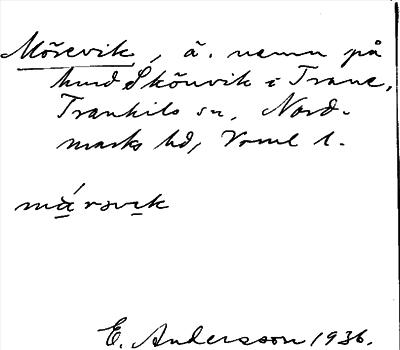 Mörsvik, ä. namn på
hmd Skönvik i Trane,
Trankils sn, Nord-
marks hd, Vrml l.
mǻrsvek
E. Andersson 1936.